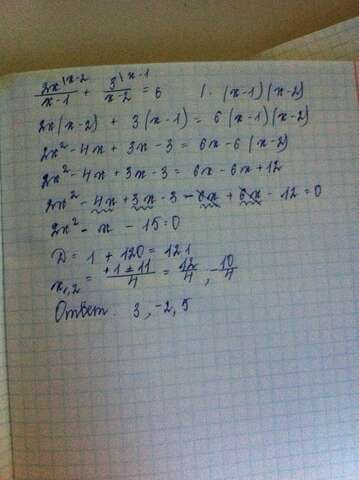 2x\x-2/x-1 + 3\x-1/x-2 = 6 | · (x-1)(x-2)
2x(x-2) + 3(x-1) = 6(x-1)(x-2)
2x² - 4x + 3x - 3 = 6x - 6(x-2)
2x² - 4x + 3x - 3 = 6x - 6x + 12
2x² - 4x + 3x - 3 - 6x + 6x - 12 = 0
2x² - x - 15 = 0
D = 1 + 120 = 121
x1,2 = +1 ± 11/4 = 12/4, -10/4
Ответ: 3, -2,5